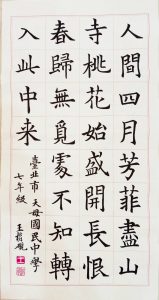 人間四月芳菲盡山
寺桃花始盛開長恨
春歸無覓處不知轉
入此中来
臺北市天母國民中學
七年級
王